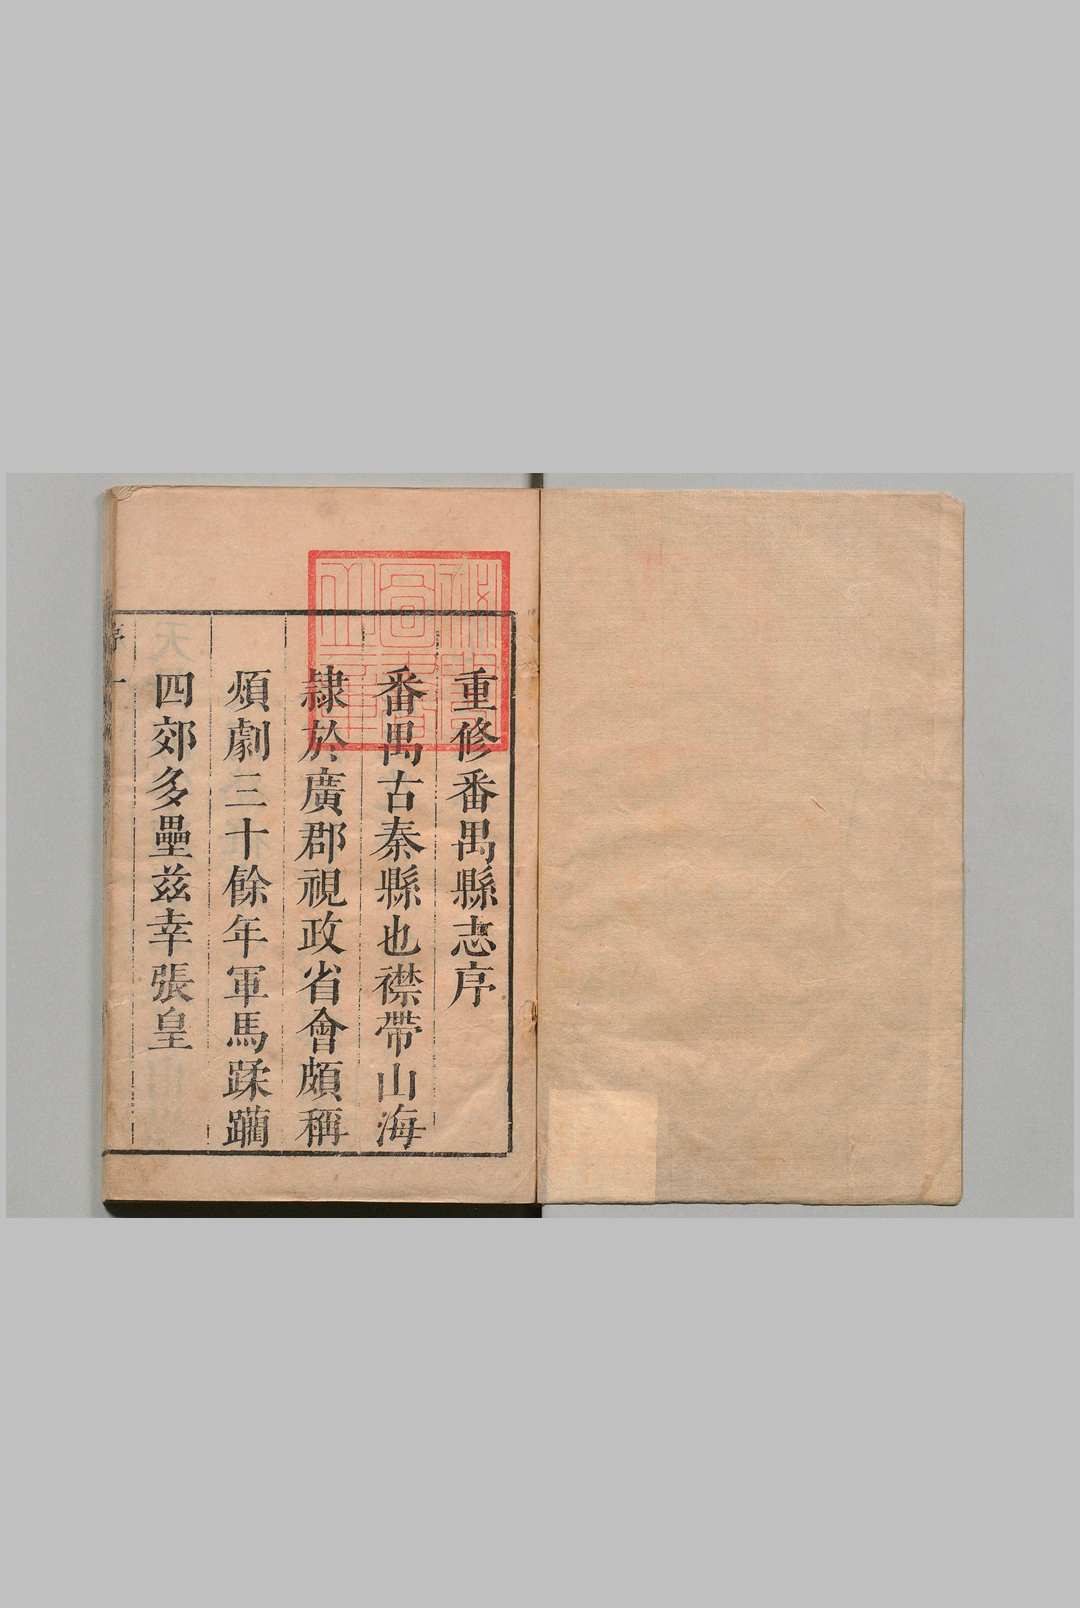 重修番禺縣志序
番禺古秦縣也襟帶山海
隸於廣郡視政省會頗稱
煩劇三十餘年軍馬蹂躪
四郊多壘茲幸張皇
序 一